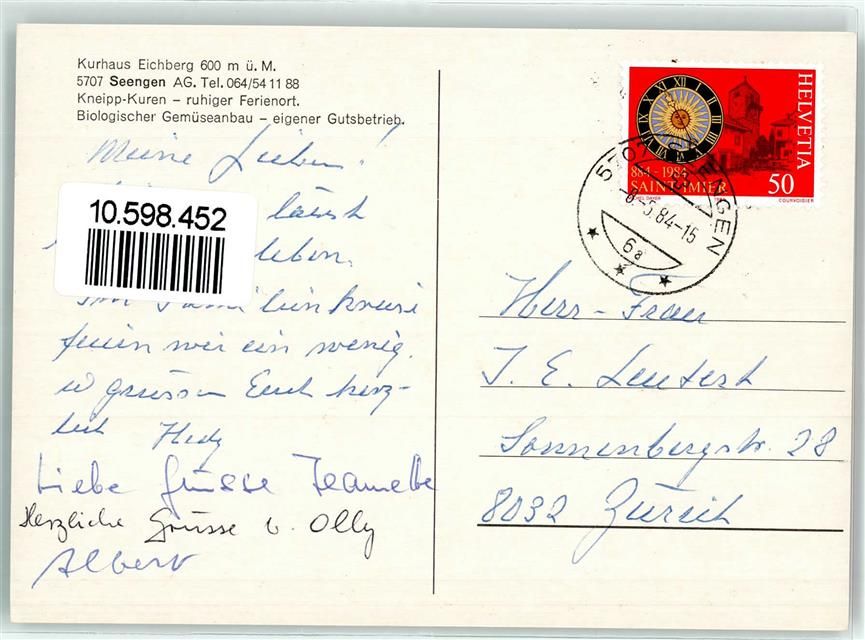 Kurhaus Eichberg 600 m ü. M.
5707 Seengen AG. Tel. 064/54 11 88
Kneipp-Kuren – ruhiger Ferienort.
Biologischer Gemüseanbau – eigener Gutsbetrieb.
Meine Lieben!
10.598.452
lässt
leben.
Im Familienkreise
feiern wir ein wenig.
u grüssen Euch herz-
lich Hedy
Liebe Grüsse Jeannette
Herzliche Grüsse v. Olly
Albert
HELVETIA
884-1984
SAINT-IMIER
50
COURVOISIER
5707 SEENGEN
-8.-5.84-15
6a
Herr - Frau
J. E. Leutert
Sonnenbergstr. 28
8032 Zürich